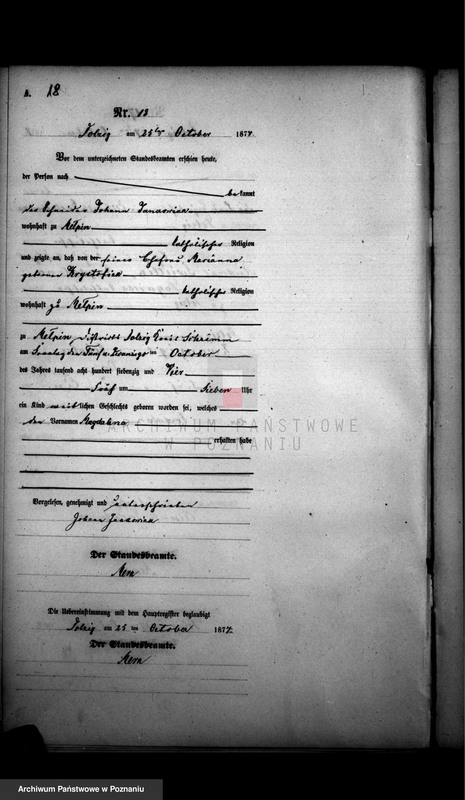 A. 18
Nr. 18
Dolzig am 25ten October 1874
Vor dem unterzeichneten Standesbeamten erschien heute,
der Person nach
bekannt
der Johann
wohnhaft zu Mełpin
katholischer Religion
und zeigte an, daß von der seiner Ehefrau Marianna
geborene Krystofiak
katholischer Religion
wohnhaft zu Mełpin
zu Mełpin, Districts Dolzig Kreis Schrimm
am October
des Jahres tausend acht hundert siebenzig und Vier
Früh um Sieben Uhr
ein Kind weiblichen Geschlechts geboren worden sei, welches
den Vornamen Magdalena
erhalten habe
ARCHIWUM PAŃSTWOWE
W POZNANIU
Vorgelesen, genehmigt und unterschrieben
Johann
Der Standesbeamte.
Die Uebereinstimmung mit dem Hauptregister beglaubigt
Dolzig am 25 ten October 1874
Der Standesbeamte.
Archiwum Państwowe w Poznaniu